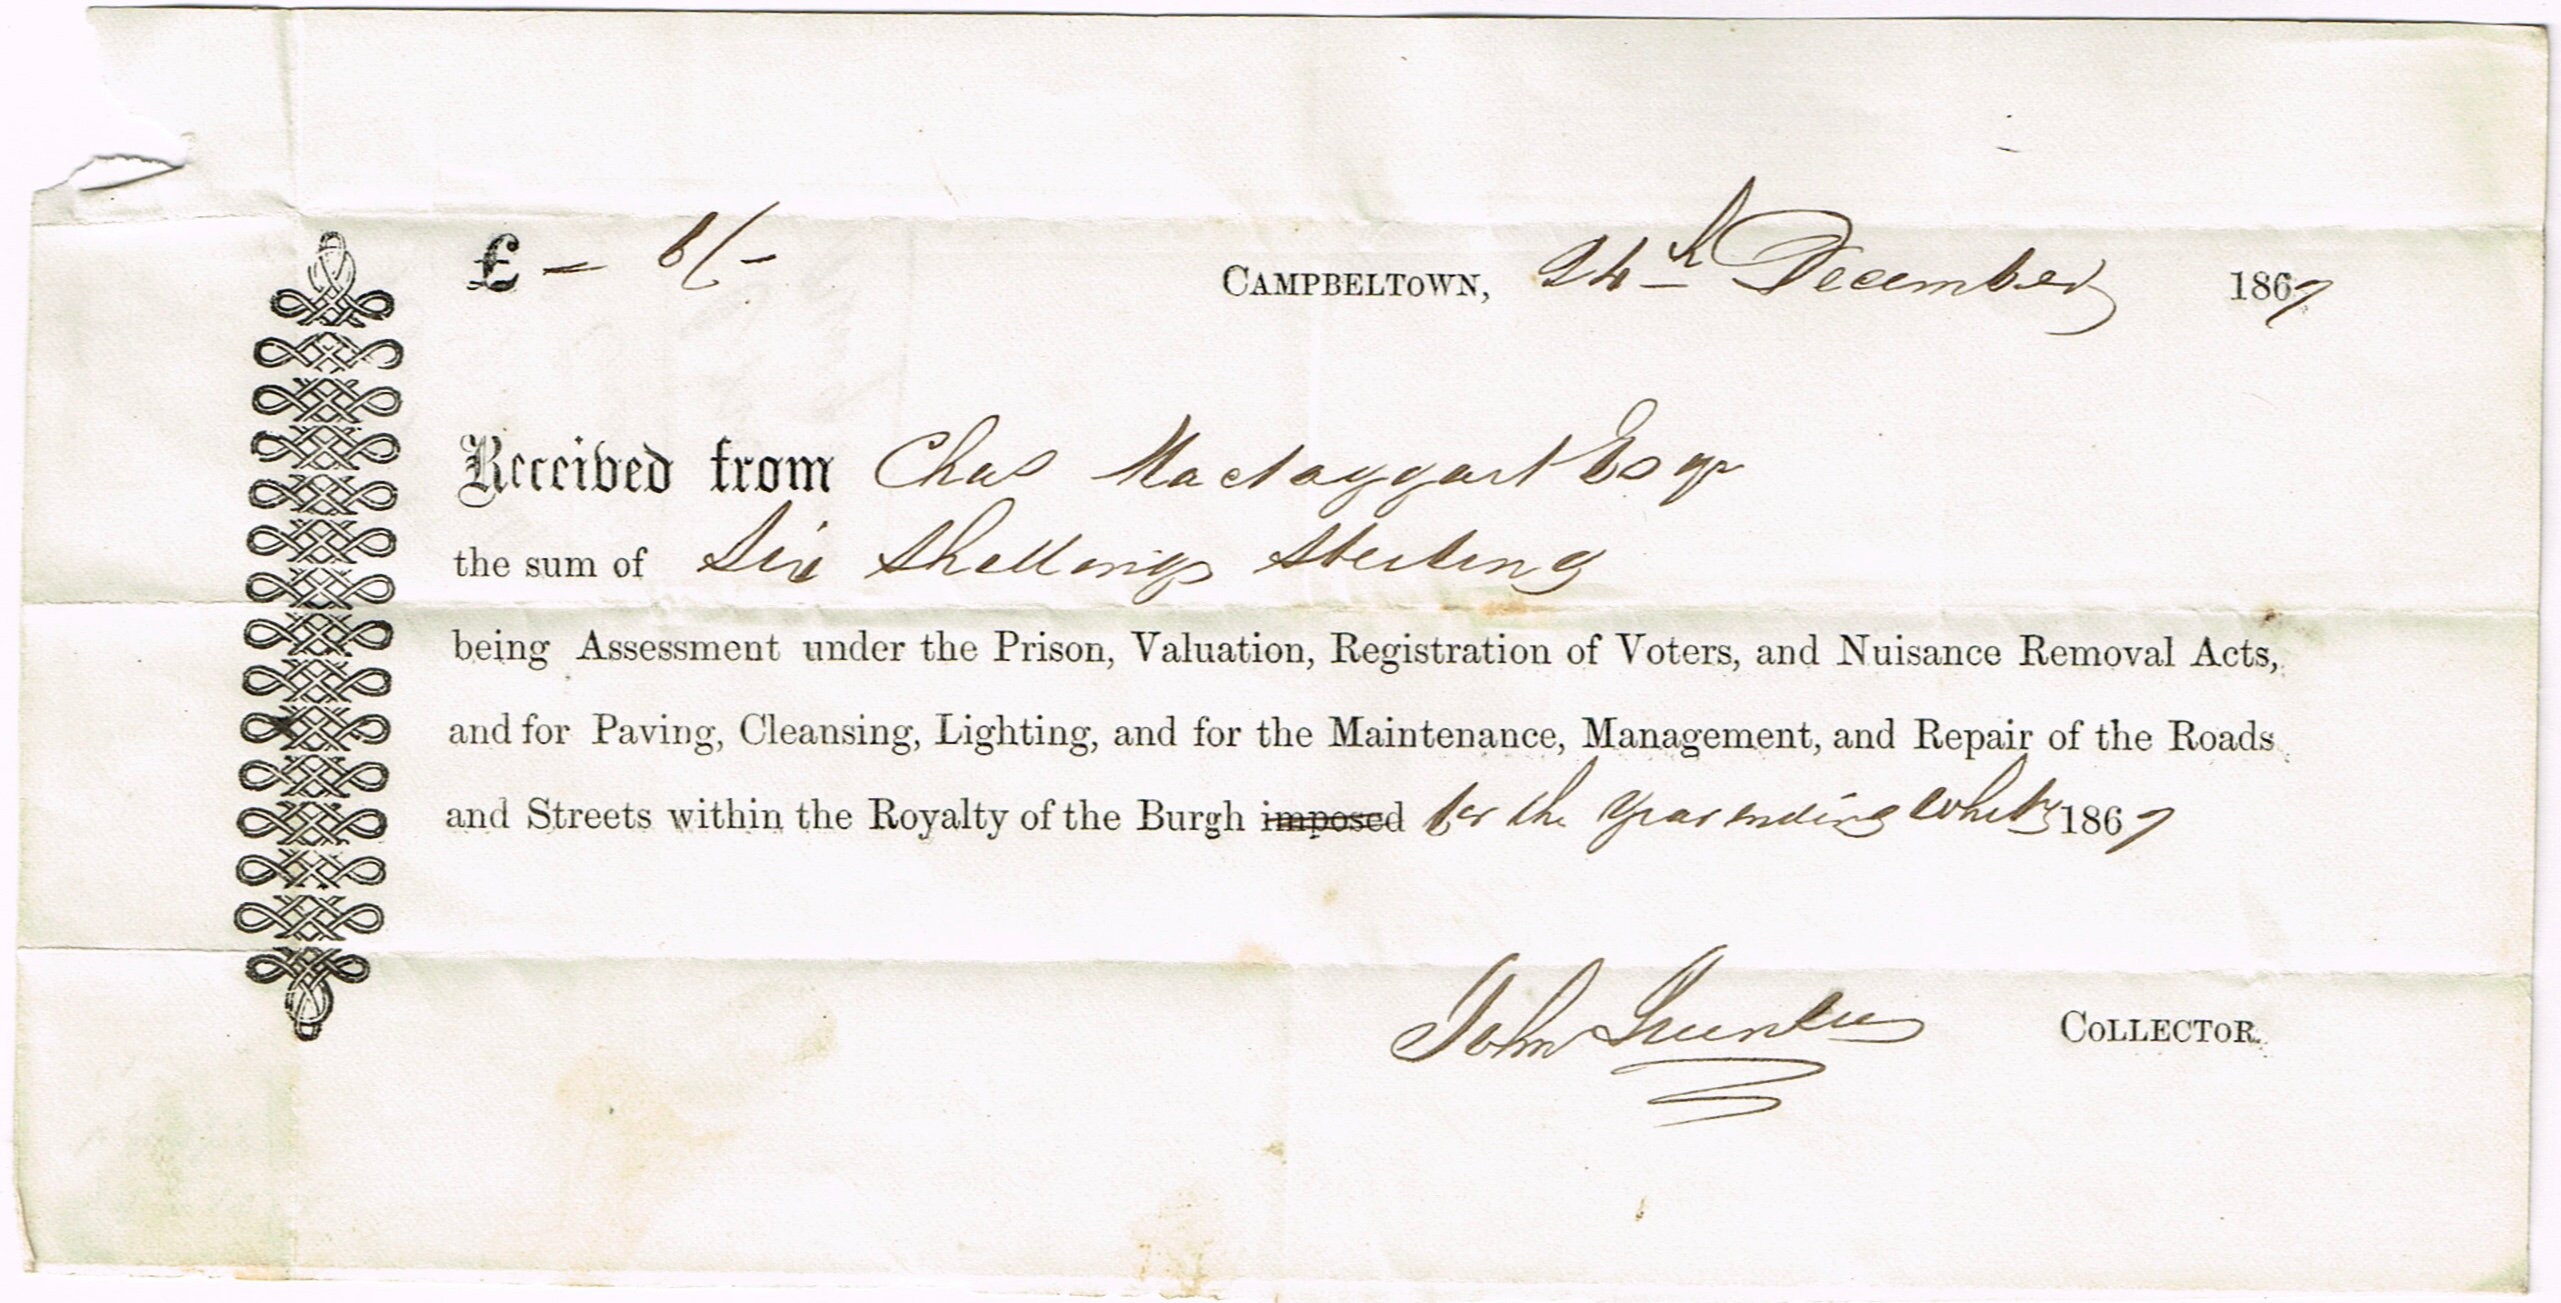 £ – 6/-
CAMPBELTOWN, 24th December 1867
Received from Chas Mactaggart Esqr
the sum of Six Shillings Sterling
being Assessment under the Prison, Valuation, Registration of Voters, and Nuisance Removal Acts,
and for Paving, Cleansing, Lighting, and for the Maintenance, Management, and Repair of the Roads
and Streets within the Royalty of the Burgh imposed for the Year ending Whity 1867
John COLLECTOR.